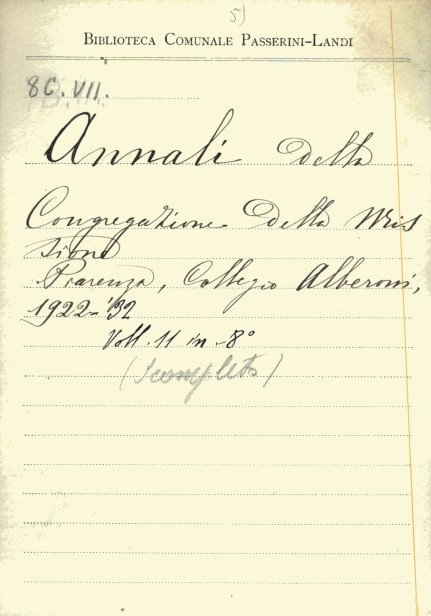 5)
BIBLIOTECA COMUNALE PASSERINI-LANDI
8C. VII.
Annali della
Congregazione della Mis
sione
Piacenza, Collegio Alberoni,
1922-'32
Voll. 11 in -8°
(scompleto)